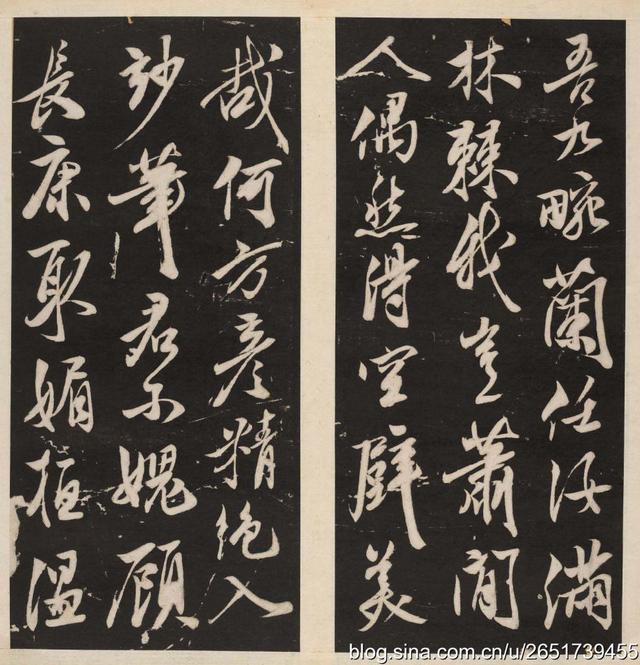 吾九畹蘭任汝滿
林棘我豈蕭閒
人偶然得空壁美
哉何方彥精絕入
妙筆君不媿顧
長康取媚桓溫
blog.sina.com.cn/u/2651739455